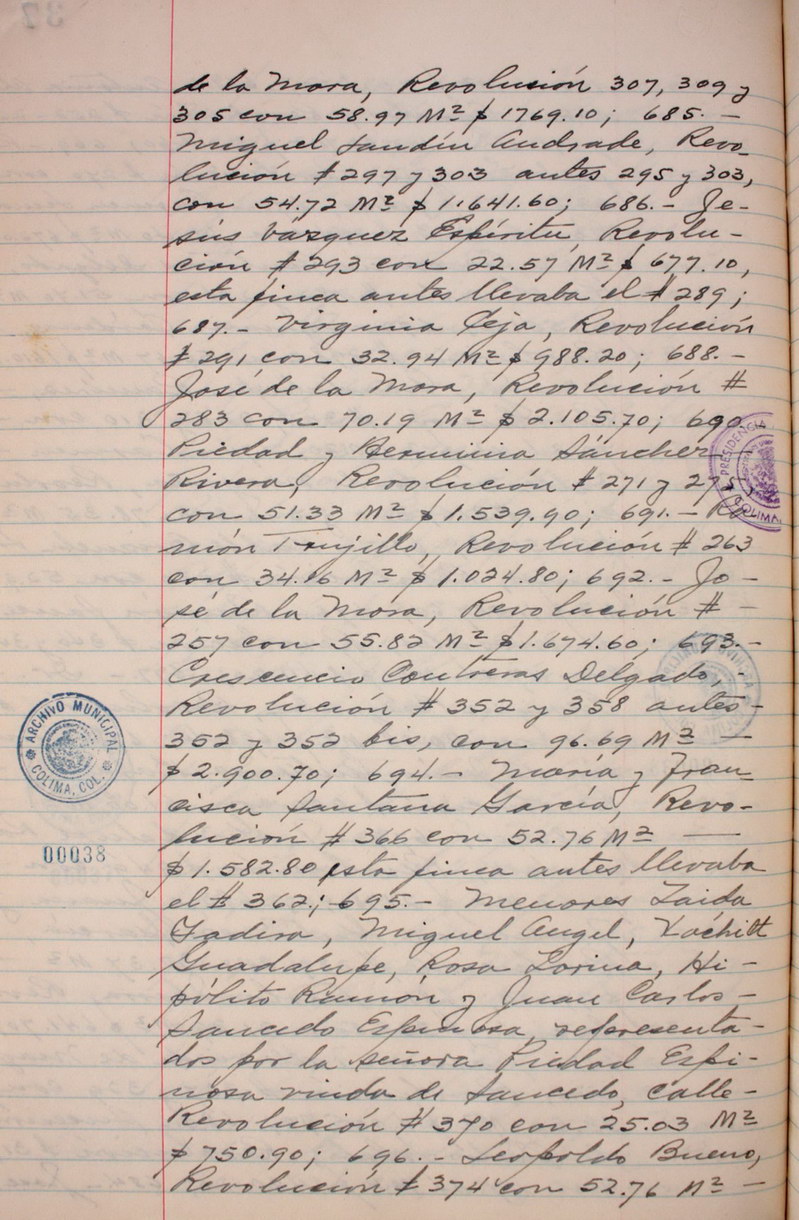 de la Mora, Revolución 307, 309 y
305 con 58.97 M² $ 1769.10; 685.-
Miguel Landín Andrade, Revo-
lución # 297 y 303 antes 295 y 303,
con 54.72 M² $ 1.641.60; 686.- Je-
sús Vázquez Espíritu, Revolu-
ción # 293 con 22.57 M² $ 677.10,
esta finca antes llevaba el # 289;
687.- Virginia Ceja, Revolución
# 291 con 32.94 M² $ 988.20; 688.-
José de la Mora, Revolución #
283 con 70.19 M² $ 2.105.70; 690
Piedad y Herminia Sánchez
Rivera, Revolución # 271 y 275
con 51.33 M² $ 1.539.90; 691.- Ra
món Trujillo, Revolución # 263
con 34.16 M² $ 1.024.80; 692.- Jo-
sé de la Mora, Revolución # -
257 con 55.82 M² $ 1.674.60; 693.-
Crescencio Contreras Delgado, -
Revolución # 352 y 358 antes -
352 y 352 bis, con 96.69 M² —
$ 2.900.70; 694.- María y Fran-
cisca Santana García, Revo-
lución # 366 con 52.76 M² —
$ 1.582.80 esta finca antes llevaba
el # 362; 695.- Menores Zaida
Yadira, Miguel Angel, Xochilt
Guadalupe, Rosa Lorina, Hi-
pólito Ramón y Juan Carlos -
Saucedo Espinosa, representa-
dos por la señora Piedad Espi-
nosa viuda de Saucedo, calle -
Revolución # 370 con 25.03 M²
$ 750.90; 696.- Leopoldo Bueno,
Revolución # 374 con 52.76 M² -
PRESIDENCIA
COLIMA
ARCHIVO MUNICIPAL
COLIMA, COL.
00038